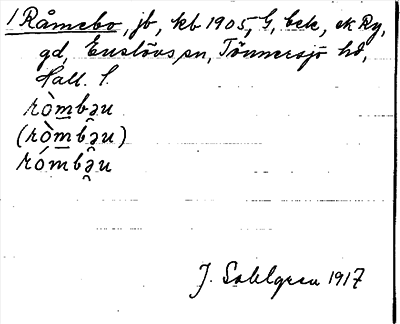 1 Råmebo, jb, kb 1905, G, bek, ek Ry,
gd, Enslövs sn, Tönnersjö hd,
Hall. l.
ròm̲bə̯u
(ròm̲bə̯u)
róm̲bə̯u
J. Sahlgren 1917